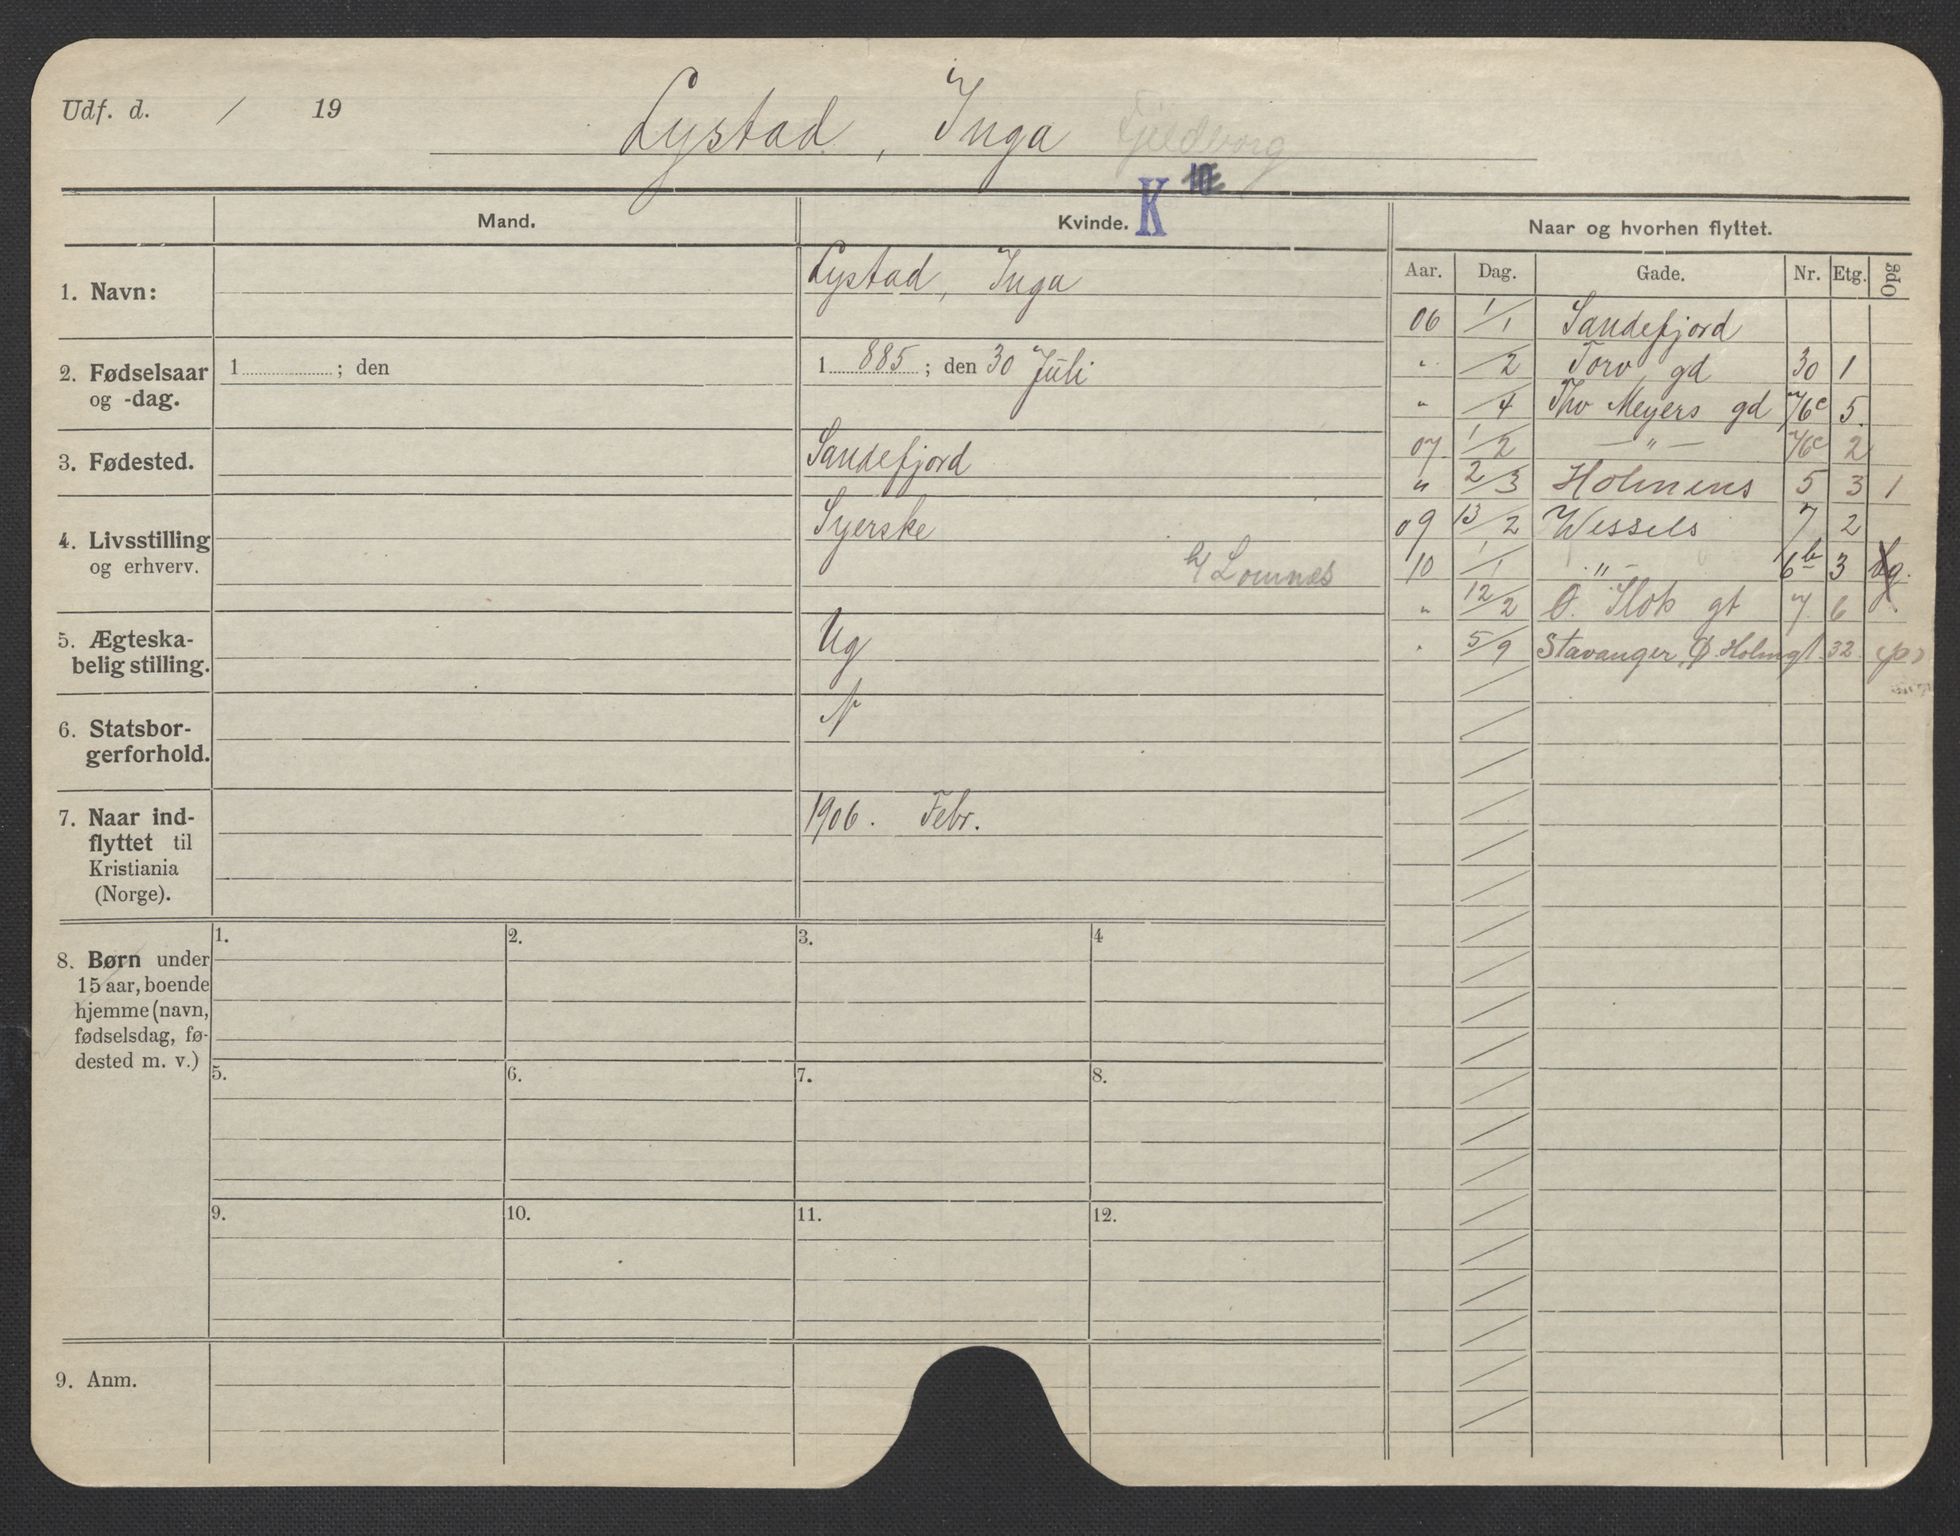 Udf. d. / 19
Lystad, Inga Fjeldborg
K
Mand.
Kvinde.
Naar og hvorhen flyttet.
Aar. Dag. Gade. Nr. Etg. Opg
1. Navn:
Lystad, Inga
2. Fødselsaar
og -dag.
1 ; den
1 885 ; den 30 Juli
3. Fødested.
Sandefjord
4. Livsstilling
og erhverv.
Syerske
h/ Lomnes
5. Ægteska-
belig stilling.
Ug
6. Statsbor-
gerforhold.
N
7. Naar ind-
flyttet til
Kristiania
(Norge).
1906. Febr.
06 1/1 Sandefjord
" /2 Torv gd 30 1
" /4 Thv Meyers gd 76c 5.
07 1/2 — " — 76c 2
" 2/3 Holmens 5 3 1
09 13/2 Wessels 7 2
10 1/1 " - 6b 3
" 12/2 O. Slots gt 7 6
" 5/9 Stavanger, Ø. Holmgt. 32.
8. Børn under
15 aar, boende
hjemme (navn,
fødselsdag, fø-
dested m. v.)
1. 2. 3. 4
5. 6. 7. 8.
9. 10. 11. 12.
9. Anm.